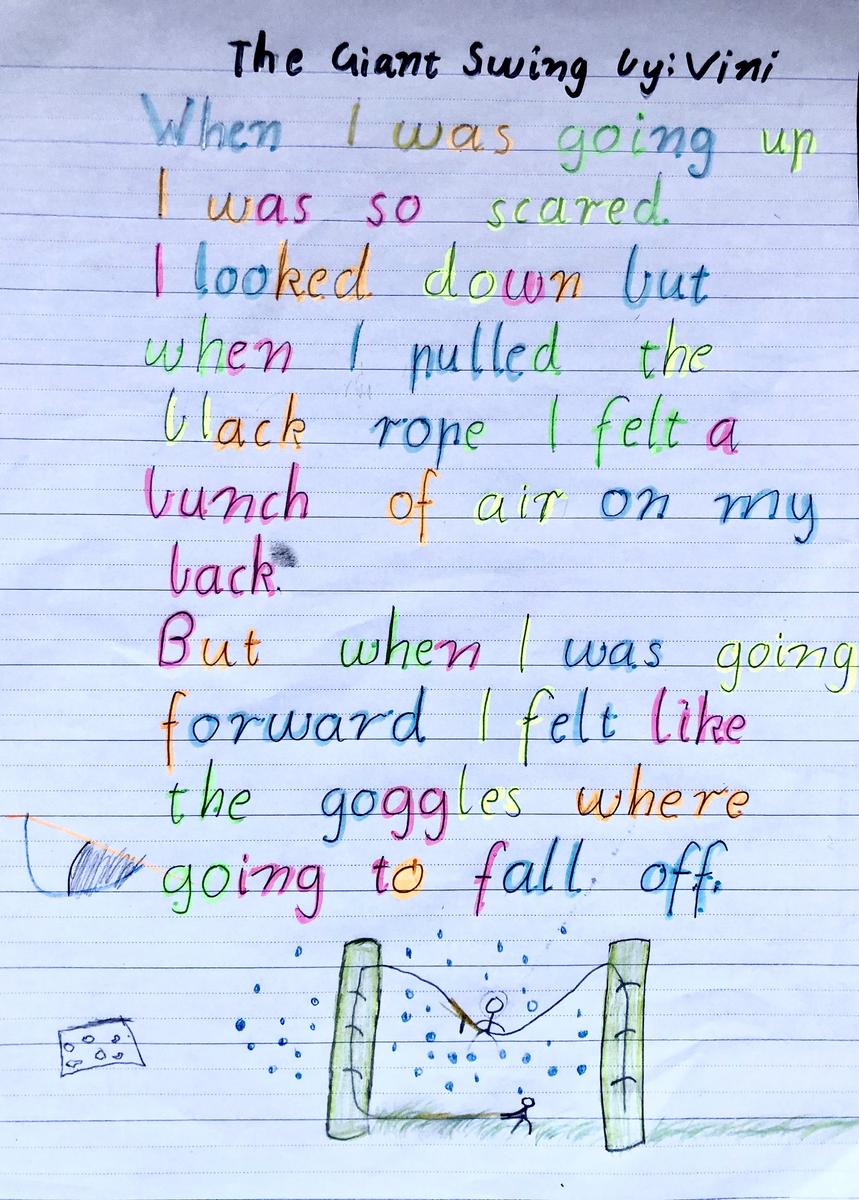 The Giant Swing by: Vini
When I was going up
I was so scared.
I looked down but
when I pulled the
black rope I felt a
bunch of air on my
back.
But when I was going
forward I felt like
the goggles where
going to fall off.